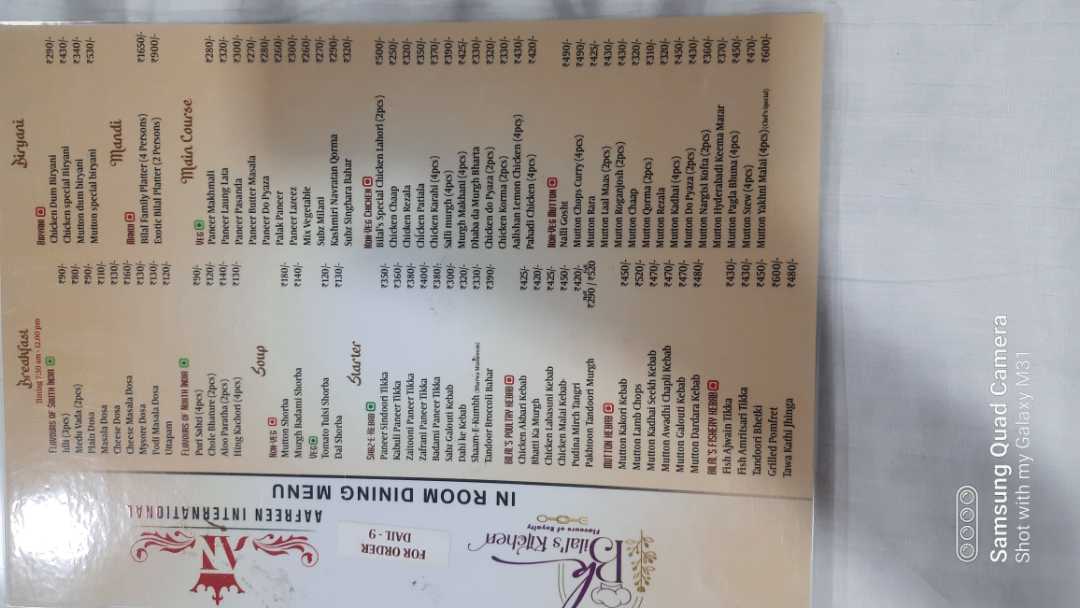 AAFREEN INTERNATIONAL
FOR ORDER
DAIL - 9
Bilal's Kitchen
Flavours of Royalty
IN ROOM DINING MENU
Breakfast
Timing 7:30 am - 12.00 pm
FLAVOURS OF SOUTH INDIA
Idli (3pcs) ₹90/-
Mocchi Vada (2pcs) ₹80/-
Plain Dosa ₹90/-
Masala Dosa ₹110/-
Cheese Dosa ₹130/-
Cheese Masala Dosa ₹160/-
Mysore Dosa ₹130/-
Podi Masala Dosa ₹130/-
Uttapam ₹120/-
FLAVOURS OF NORTH INDIA
Puri Sabzi (4pcs) ₹90/-
Chole Bhature (2pcs) ₹120/-
Aloo Paratha (2pcs) ₹140/-
Hing Kachori (4pcs) ₹130/-
Soup
NON-VEG
Mutton Shorba ₹180/-
Murgh Badami Shorba ₹140/-
VEG
Tomato Tulsi Shorba ₹120/-
Dal Shorba ₹130/-
Starter
SABZ-E-KEBAB
Paneer Sindoori Tikka ₹350/-
Kabuli Paneer Tikka ₹360/-
Zaitooni Paneer Tikka ₹380/-
Zafrani Paneer Tikka ₹400/-
Badami Paneer Tikka ₹380/-
Sabz Galouti Kebab ₹300/-
Dahi ke Kebab ₹320/-
Shaam-E-Kumbh ₹330/-
Tandoor Broccoli Bahar ₹390/-
BILAL'S POULTRY KEBAB
Chicken Akbari Kebab ₹425/-
Bhatti Ka Murgh ₹420/-
Chicken Lahasuni Kebab ₹425/-
Chicken Malai Kebab ₹450/-
Pudina Mirch Tangri ₹420/-
Pakhtoon Tandoori Murgh ₹290 / ₹520
MUTTON KEBAB
Mutton Kakori Kebab ₹450/-
Mutton Lamb Chops ₹520/-
Mutton Kadhai Seekh Kebab ₹470/-
Mutton Awadhi Chapli Kebab ₹470/-
Mutton Galouti Kebab ₹470/-
Mutton Dardara Kebab ₹480/-
BILAL'S FISHERY KEBAB
Fish Ajwain Tikka ₹430/-
Fish Amritsari Tikka ₹430/-
Tandoori Bhetki ₹450/-
Grilled Pomfret ₹600/-
Tawa Kathi Jhinga ₹480/-
Biryani
BIRYANI
Chicken Dum Biryani ₹290/-
Chicken special Biryani ₹430/-
Mutton dum biryani ₹340/-
Mutton special biryani ₹530/-
Mandi
MANDI
Bilal Family Platter (4 Persons) ₹1650/-
Exotic Bilal Platter (2 Persons) ₹900/-
Main Course
VEG
Paneer Makhmali ₹280/-
Paneer Laung Lata ₹320/-
Paneer Pasanda ₹300/-
Paneer Butter Masala ₹270/-
Paneer Do Pyaza ₹280/-
Palak Paneer ₹260/-
Paneer Lazeez ₹300/-
Mix Vegetable ₹260/-
Subz Milani ₹270/-
Kashmiri Navratan Qorma ₹290/-
Subz Singhara Bahar ₹320/-
NON-VEG CHICKEN
Bilal's Special Chicken Lahori (2pcs) ₹500/-
Chicken Chaap ₹250/-
Chicken Rezala ₹320/-
Chicken Patiala ₹350/-
Chicken Karahi (4pcs) ₹370/-
Salli murgh (4pcs) ₹390/-
Murgh Makhani (4pcs) ₹425/-
Dhaba da Murgh Bharta ₹330/-
Chicken do Pyaza (2pcs) ₹320/-
Chicken Korma (2pcs) ₹330/-
Aalishan Lemon Chicken (4pcs) ₹430/-
Pahadi Chicken (4pcs) ₹420/-
NON-VEG MUTTON
Nalli Gosht ₹490/-
Mutton Chops Curry (4pcs) ₹490/-
Mutton Rara ₹425/-
Mutton Laal Maas (2pcs) ₹430/-
Mutton Roganjosh (2pcs) ₹430/-
Mutton Chaap ₹320/-
Mutton Qorma (2pcs) ₹310/-
Mutton Rezala ₹320/-
Mutton Kadhai (4pcs) ₹450/-
Mutton Do Pyaza (2pcs) ₹430/-
Mutton Nargisi Kofta (2pcs) ₹360/-
Mutton Hyderabadi Keema Matar ₹370/-
Mutton Pagla Bhuna (4pcs) ₹450/-
Mutton Stew (4pcs) ₹470/-
Mutton Yakhni Malai (4pcs) (Chef's Special) ₹600/-
Samsung Quad Camera
Shot with my Galaxy M31